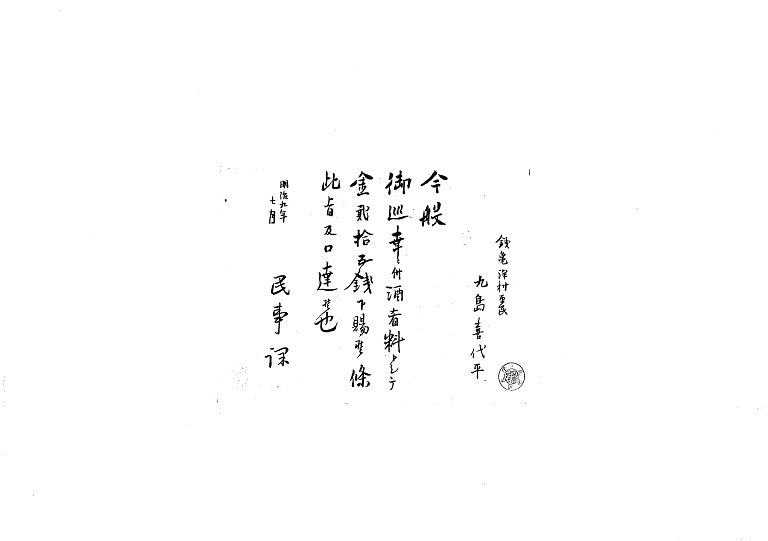 銭亀沢村平民
九島喜代平
今般
御巡幸ニ付酒肴料トシテ
金貳拾五銭下賜候條
此旨及口達候也
明治九年
七月
民事課